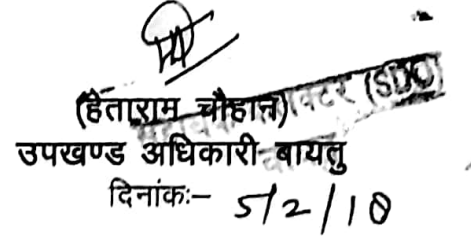 (हेताराम चौहान)
उपखण्ड अधिकारी बायतु
दिनांकः– 5/2/18
(SDO)